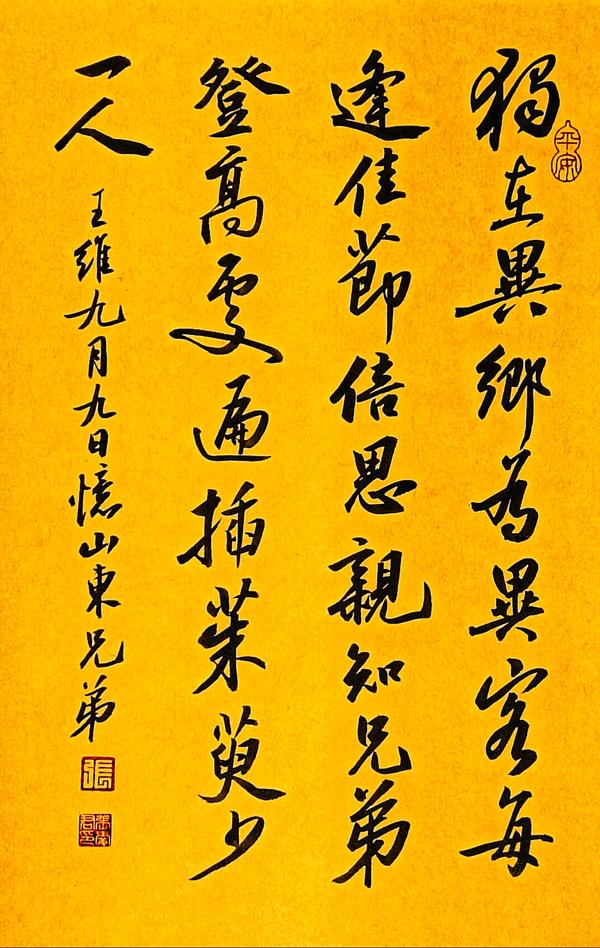 平安
獨在異鄉為異客每
逢佳節倍思親知兄弟
登高處遍插茱萸少
一人
王維九月九日憶山東兄弟
張